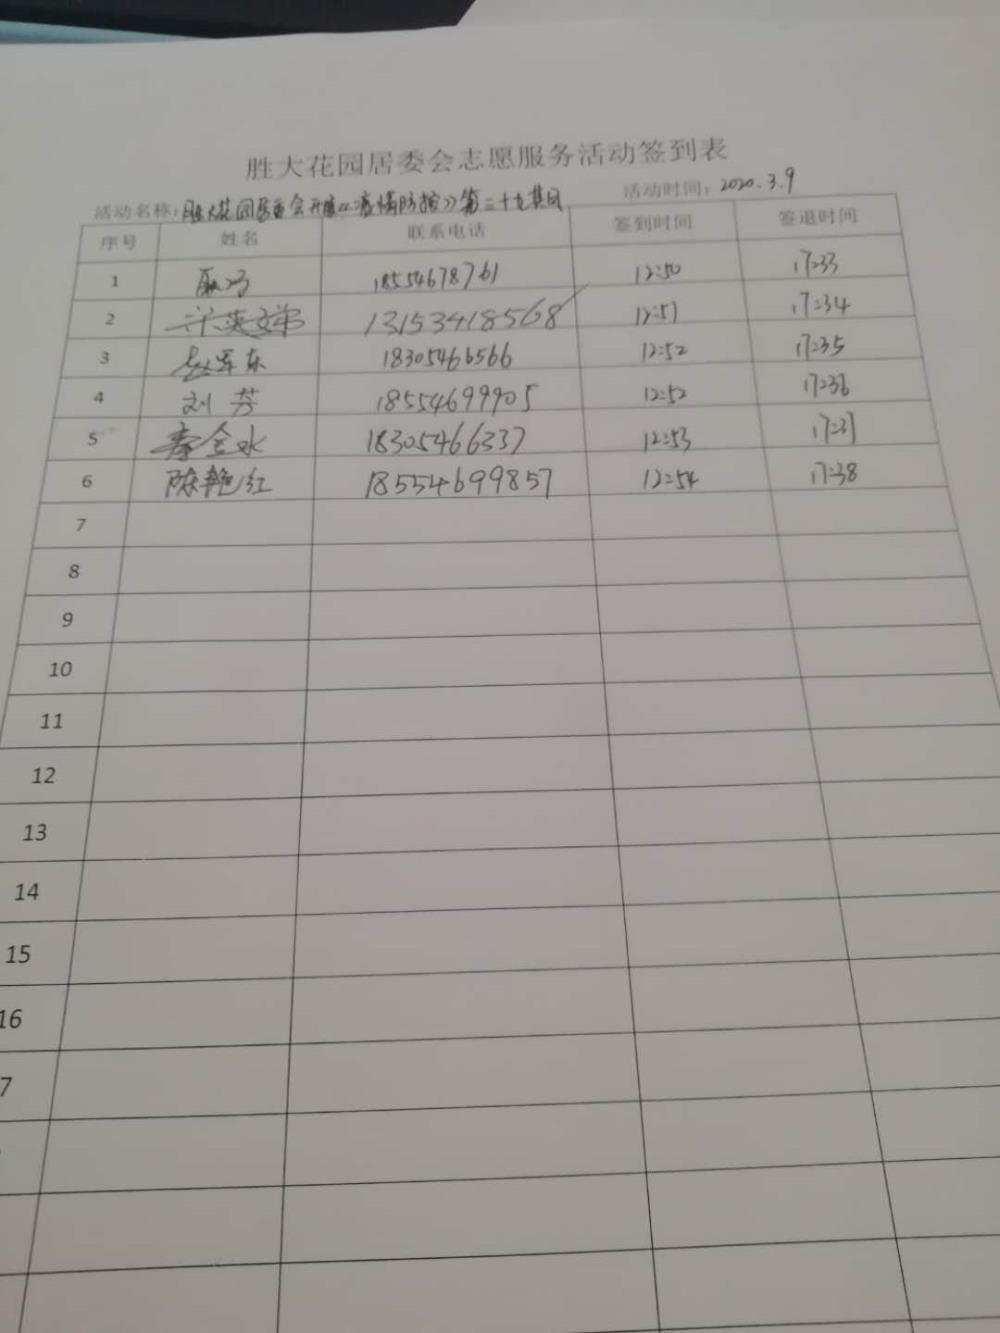 胜大花园居委会志愿服务活动签到表
活动名称：胜大花园居委会开展《疫情防控》第二十九集团 活动时间：2020.3.9
序号 姓名 联系电话 签到时间 签退时间
1 18554678761 12:50 17:33
2 13153418568 12:51 17:34
3 赵军东 18305466566 12:52 17:35
4 刘芳 18554699905 12:52 17:36
5 秦金水 18305466337 12:53 17:37
6 陈艳红 18554699857 12:54 17:38
7
8
9
10
11
12
13
14
15
16
7